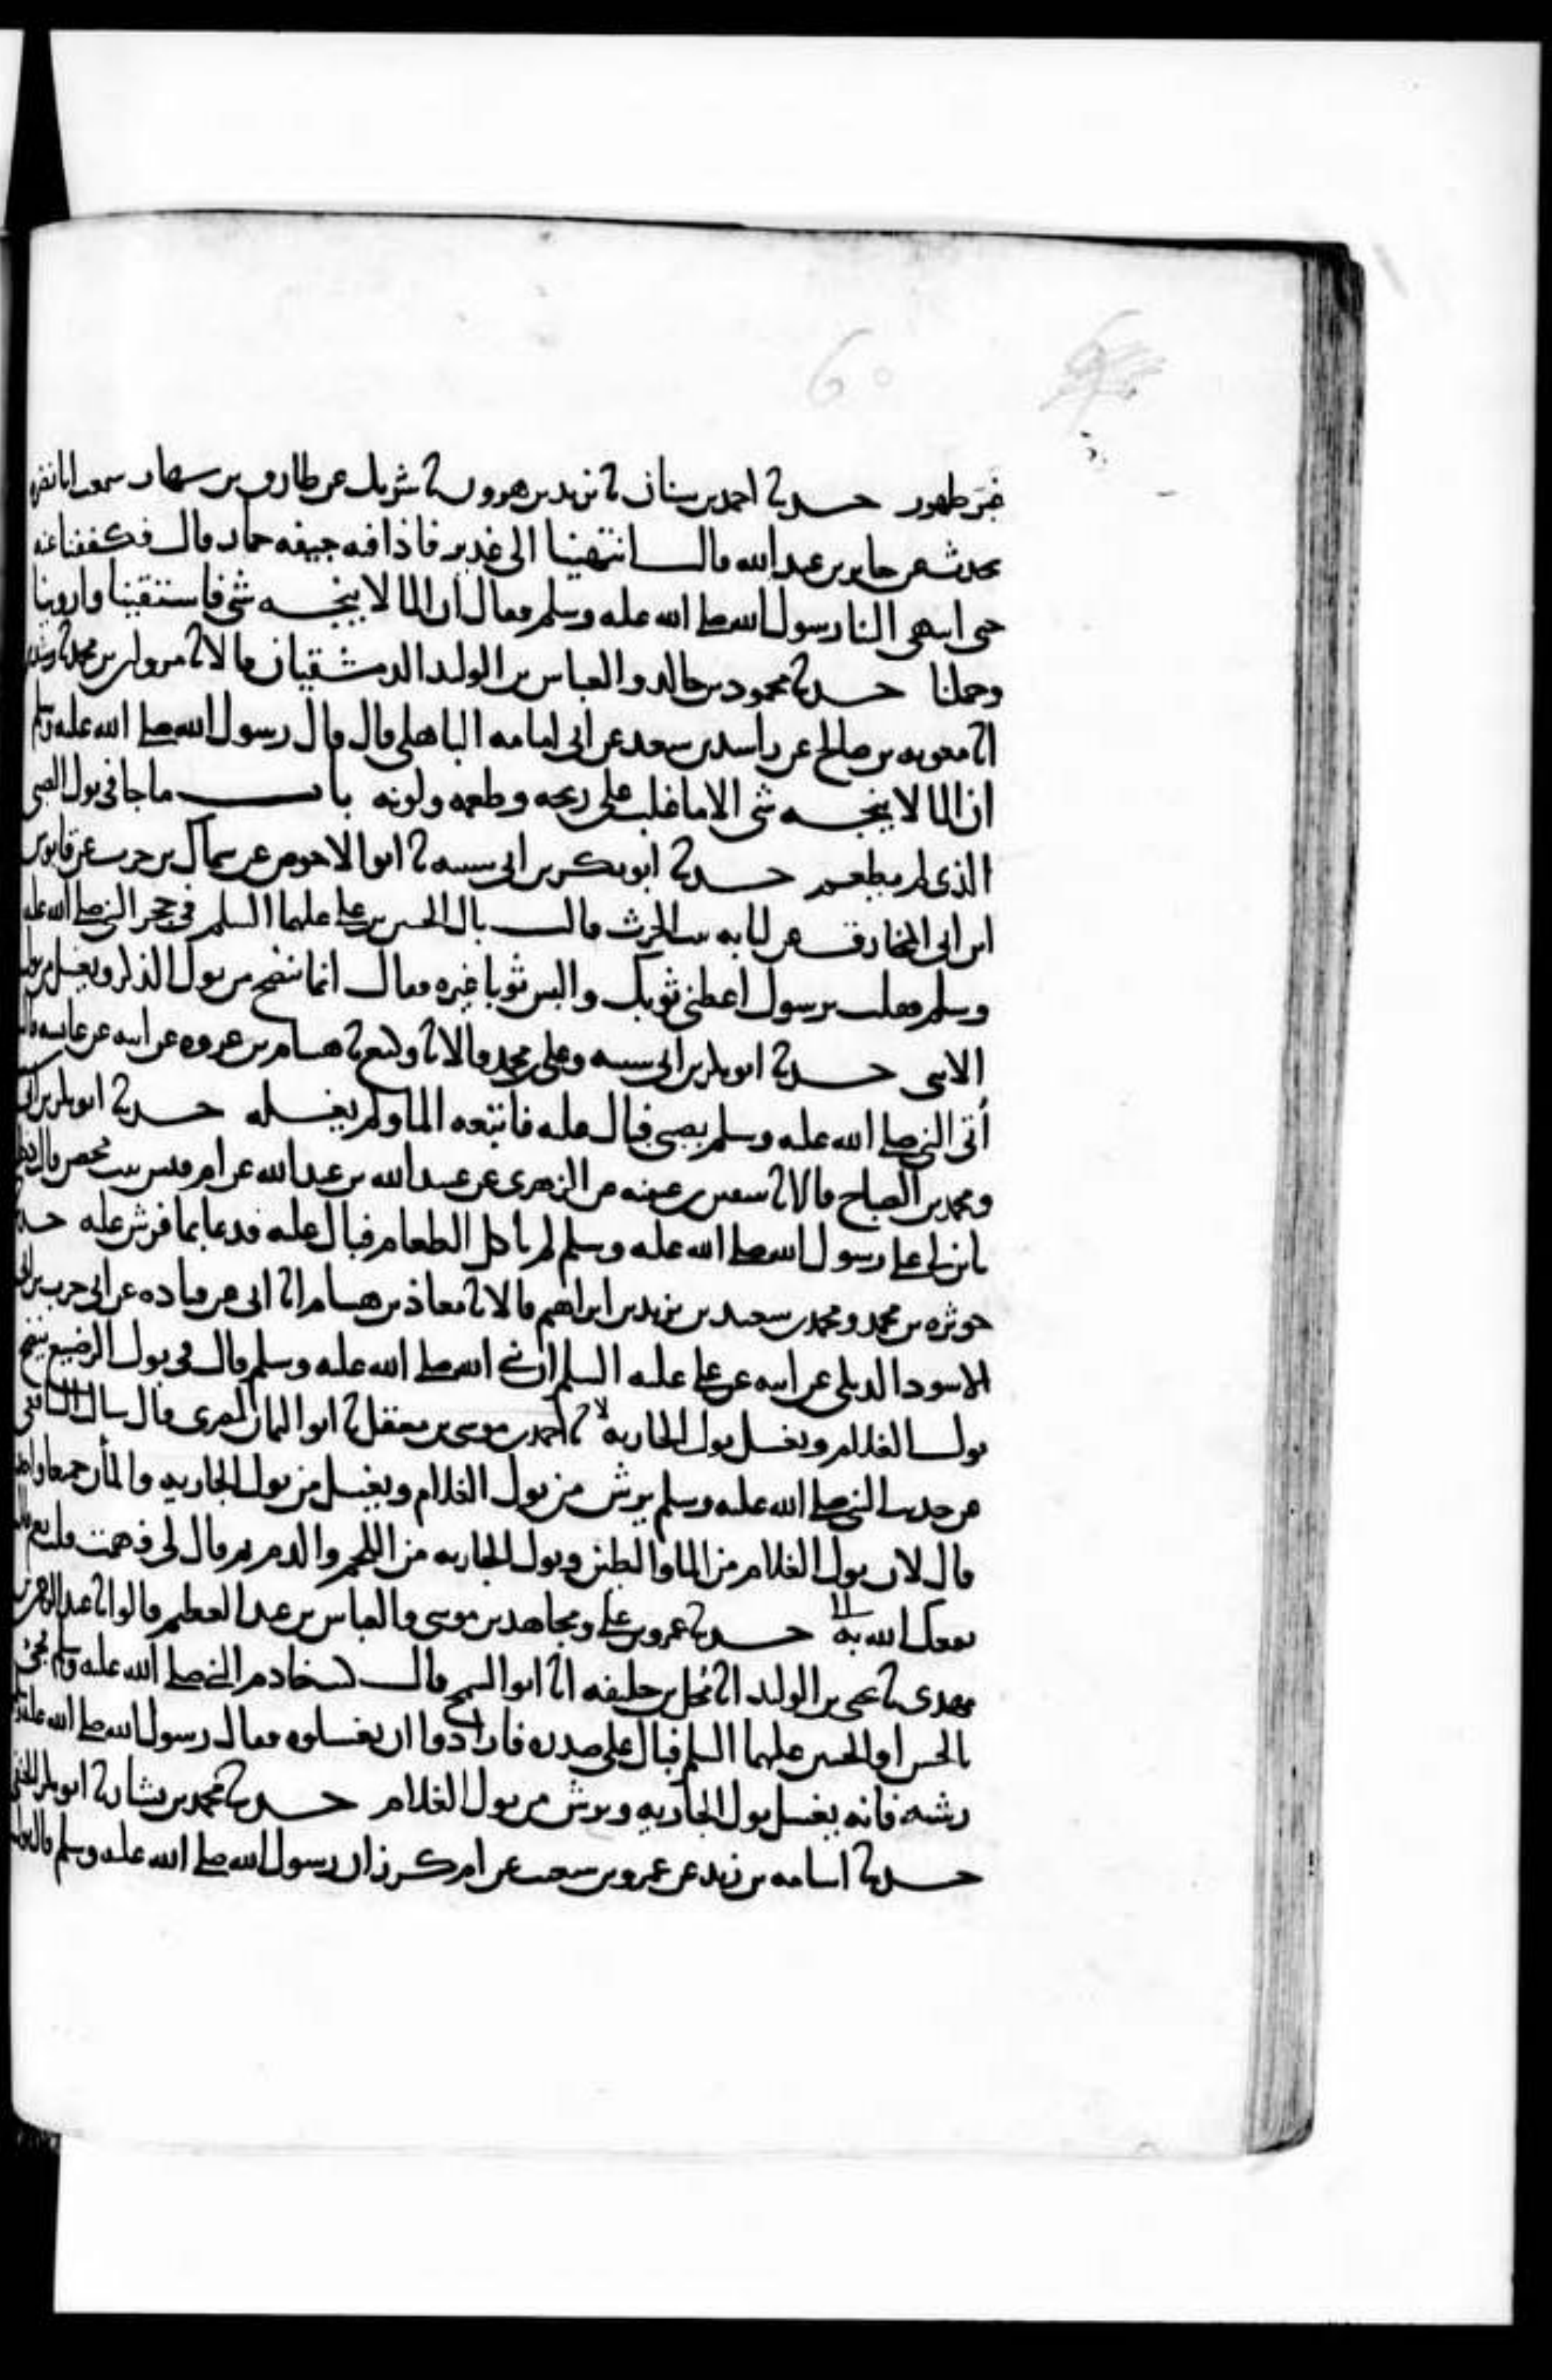 60
غبر طهور حدثنا احمد بن سنان ثنا يزيد بن هرون ثنا شريك عن طارق بن شهاب سمعت ابا نضرة
يحدث عن جابر بن عبد الله قال انتهينا الى غدير فاذا فيه جيفه حمار قال فكففنا عنه
حتى انتهى الينا رسول الله صلى الله عليه وسلم فقال ان الما لا ينجسه شي فاستقينا واروينا
وحملنا حدثنا محمود بن خالد والعباس بن الوليد الدمشقيان قالا ثنا مروان بن محمد ثنا رشدين
انا معويه بن صالح عن راشد بن سعد عن ابي امامه الباهلي قال قال رسول الله صلى الله عليه وسلم
ان الما لا ينجسه شي الا ما غلب على ريحه وطعمه ولونه باب ما جا في بول الصبي
الذي لم يطعم حدثنا ابو بكر بن ابي شيبه ثنا ابو الاحوص عن سماك بن حرب عن قابوس
ابن ابي المخارق عن لبابه بنت الحرث قالت بال الحسين بن علي عليهما السلم في حجر النبي صلى الله عليه
وسلم فقلت يرسول اعطني ثوبك والبس ثوبا غيره فقال انما ينضح من بول الذكر ويغسل من بول
الانثى حدثنا ابو بكر بن ابي شيبه وعلي بن محمد قالا ثنا وكيع ثنا هشام بن عروه عن ابيه عن عايشه قالت
أتي النبي صلى الله عليه وسلم بصبي فبال عليه فاتبعه الما ولم يغسله حدثنا ابو بكر بن ابي
ومحمد بن الصباح قالا ثنا سفين بن عيينه عن الزهري عن عبيد الله بن عبد الله عن ام قيس بنت محصن قالت دخلت
بابن لي على رسول الله صلى الله عليه وسلم لم ياكل الطعام فبال عليه فدعا بما فرش عليه حدثنا
حوثره بن محمد ومحمد بن سعيد بن يزيد بن ابراهيم قالا ثنا معاذ بن هشام انا ابي عن قتاده عن ابي حرب بن ابي
الاسود الديلي عن ابيه عن علي عليه السلم ان نبي الله صلى الله عليه وسلم قال في بول الرضيع ينضح
بول الغلام ويغسل بول الجاريه لا ثنا احمد بن موسى بن معقل ثنا ابو اليمان المصري قال سالت الشافعي
عن حديث النبي صلى الله عليه وسلم يرش من بول الغلام ويغسل من بول الجاريه والمأان جميعا واحد
قال لان بول الغلام من الما والطين وبول الجاريه من اللحم والدم ثم قال لي فهمت قلت نعم قال
نفعك الله به الى حدثنا عمرو بن علي ومجاهد بن موسى والعباس بن عبد العظيم قالوا ثنا عبد الرحمن بن
مهدي ثنا يحيى بن الوليد انا محل بن خليفه انا ابو السمح قال كنت خادم النبي صلى الله عليه وسلم فجي
بالحسن او الحسين عليهما السلم فبال على صدره فارادوا ان يغسلوه فقال رسول الله صلى الله عليه وسلم
رشه فانه يغسل بول الجاريه ويرش من بول الغلام حدثنا محمد بن بشار ثنا ابو بكر الحنفي
حدثنا اسامه بن زيد عن عمرو بن شعيب عن ام كرز ان رسول الله صلى الله عليه وسلم قال بول